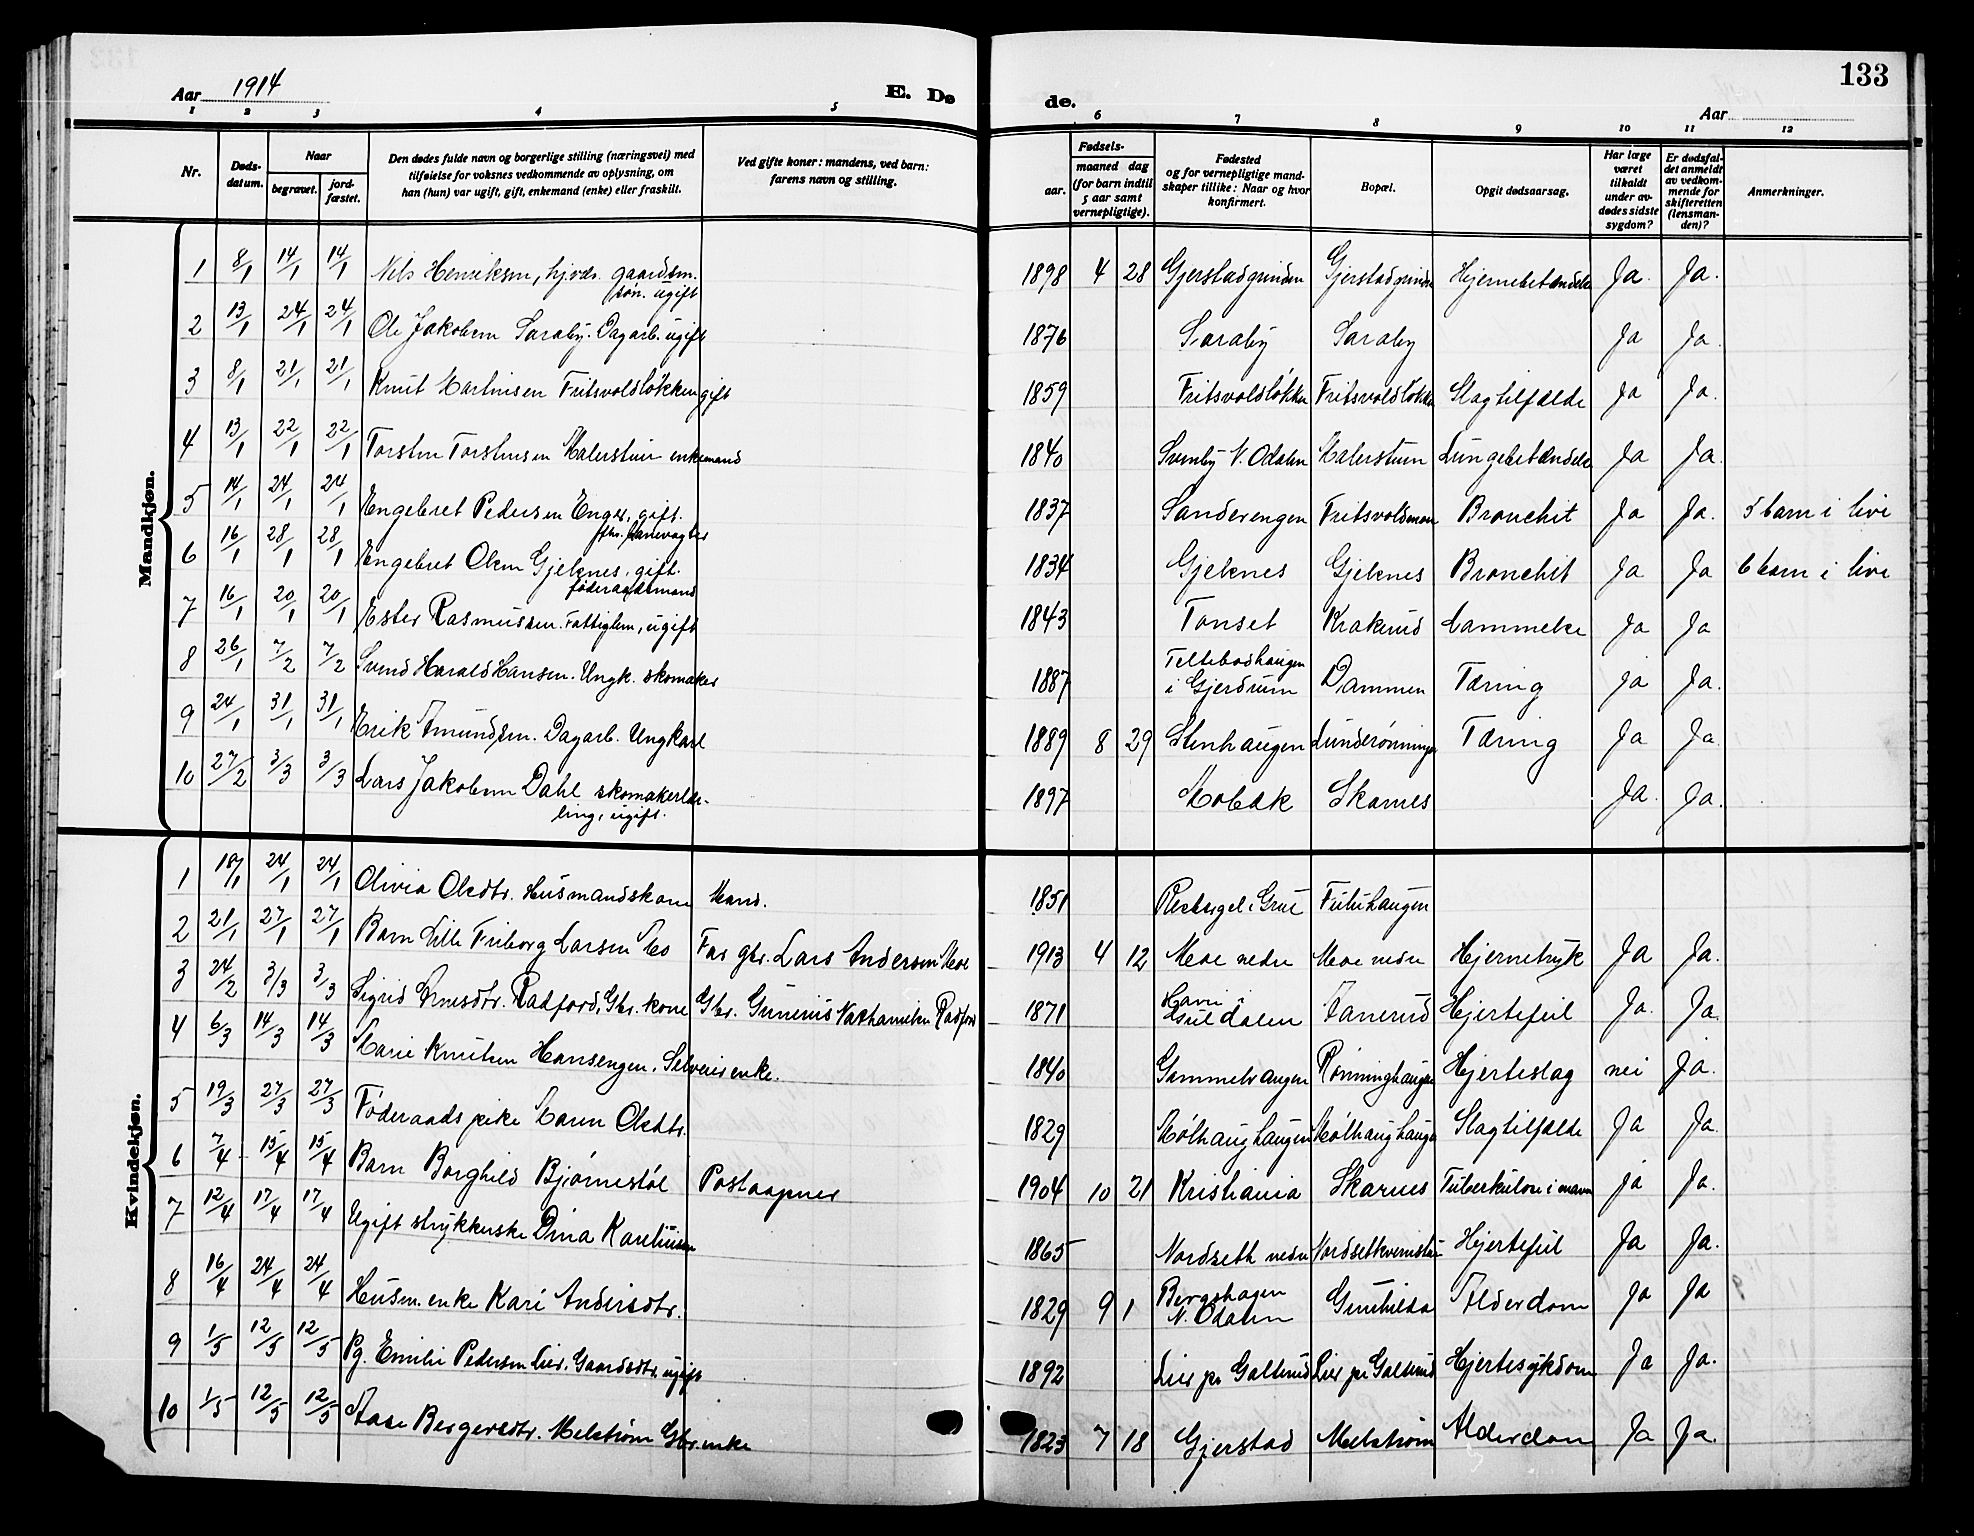 133
Aar 1914 E. Dø de. Aar
1 2 3 4 5 6 7 8 9 10 11 12
Nr. Døds-datum. Naar begravet. jord-fæstet. Den dødes fulde navn og borgerlige stilling (næringsvei) med tilføielse for voksnes vedkommende av oplysning, om han (hun) var ugift, gift, enkemand (enke) eller fraskilt. Ved gifte koner: mandens, ved barn: farens navn og stilling. Fødsels- aar. maaned dag (for barn indtil 5 aar samt vernepligtige). Fødested og for vernepligtige mandskaper tillike: Naar og hvor konfirmert. Bopæl. Opgit dødsaarsag. Har læge været tilkaldt under av-dødes sidste sygdom? Er dødsfal-det anmeldt av vedkom-mende for skifteretten (lensman-den)? Anmerkninger.
Mandkjøn.
1 8/1 14/1 14/1 Nels Henriksen, hjvær. gaardsm. søn. ugift 1898 4 28 Gjerstadgrinden Gjerstadgrinden Hjernebetændelse Ja. Ja.
2 13/1 24/1 24/1 Ole Jakobsen Saraby. Dagarb. ugift 1876 Saraby Saraby Ja Ja.
3 8/1 21/1 21/1 Knut Martinisen Fritsvoldløkken gift 1859 Fritsvoldløkken Fritsvoldløkken Slagtilfælde Ja Ja.
4 13/1 22/1 22/1 Torsten Torstensen Malerstuen enkemand 1840 Svenby N. Odalen Malerstuen Lungebetændelse Ja Ja.
5 14/1 24/1 24/1 Engebret Pedersen Enger, gift. fhv. banevogter 1837 Sanderengen Fritsvoldmoen Bronchit Ja Ja. 5 barn i live
6 16/1 28/1 28/1 Engebret Olsen Gjeknes, gift. føderaadsmand 1834 Gjeknes Gjeknes Bronchit Ja Ja 6 barn i live
7 16/1 20/1 20/1 Ester Rasmussen. Fattiglem, ugift 1843 Tonset Krakerud Lammelse Ja Ja
8 26/1 7/2 7/2 Svend Harald Hansen. Ungk. skomaker 1887 Teltebodhaugen i Gjerdrum Dammen Tæring ja Ja.
9 24/1 31/1 31/1 Erik Amundsen. Dagarb. Ungkarl 1889 8 29 Stenhaugen Lunderønningen Tæring Ja Ja.
10 27/2 3/3 3/3 Lars Jakobsen Dahl skomakerlær-ling, ugift. 1897 Mobæk Skarnes Ja. Ja.
Kvindekjøn.
1 18/1 24/1 24/1 Olivia Olsdtr. Husmandskone Mand. 1851 Rebergel i Grue Fuluhaugen
2 21/1 27/1 27/1 Barn Lilli Friborg Larsen Mo Far gbr. Lars Andersen Moe 1913 4 12 Moe nedre Moe nedre Hjernetryk Ja Ja.
3 24/2 3/3 3/3 Sigrid Arnesdtr. Radford, Gbr. kone Gbr. Gunerius Nathanielsen Radford 1871 Havn i Guldalen Tanerud Hjertefeil Ja. Ja.
4 6/3 14/3 14/3 Marie Knutsen Hansengen. Selveierenke. 1840 Gammelvangen Rønninghaugen Hjerteslag nei Ja.
5 19/3 27/3 27/3 Føderaadspike Maren Olsdtr. 1829 Mølhaughaugen Mølhaughaugen Slagtilfælde Ja Ja.
6 7/4 15/4 15/4 Barn Borghild Bjørnestøl Postaapner 1904 10 21 Kristiania Skarnes Tuberkulose i maven ja Ja.
7 12/4 17/4 17/4 Ugift strykkerske Dina Karelinsen 1865 Nordseth nedre Nordsetkvernstuen Hjertefeil Ja Ja.
8 16/4 24/4 24/4 Husm. enke Kari Andersdtr. 1829 9 1 Bergshagen N. Odalen Gunhilda Alderdom Ja Ja
9 1/5 12/5 12/5 Pg. Emilie Pedersen Lier. Gaardsdtr. ugift 1892 Lier pr Galterud Lier pr Galterud Hjertesykdom Ja Ja.
10 1/5 12/5 12/5 Aase Bergersdtr. Melstrøm Gbr.enke 1823 7 18 Gjerstad Melstrøm Alderdom Ja Ja.